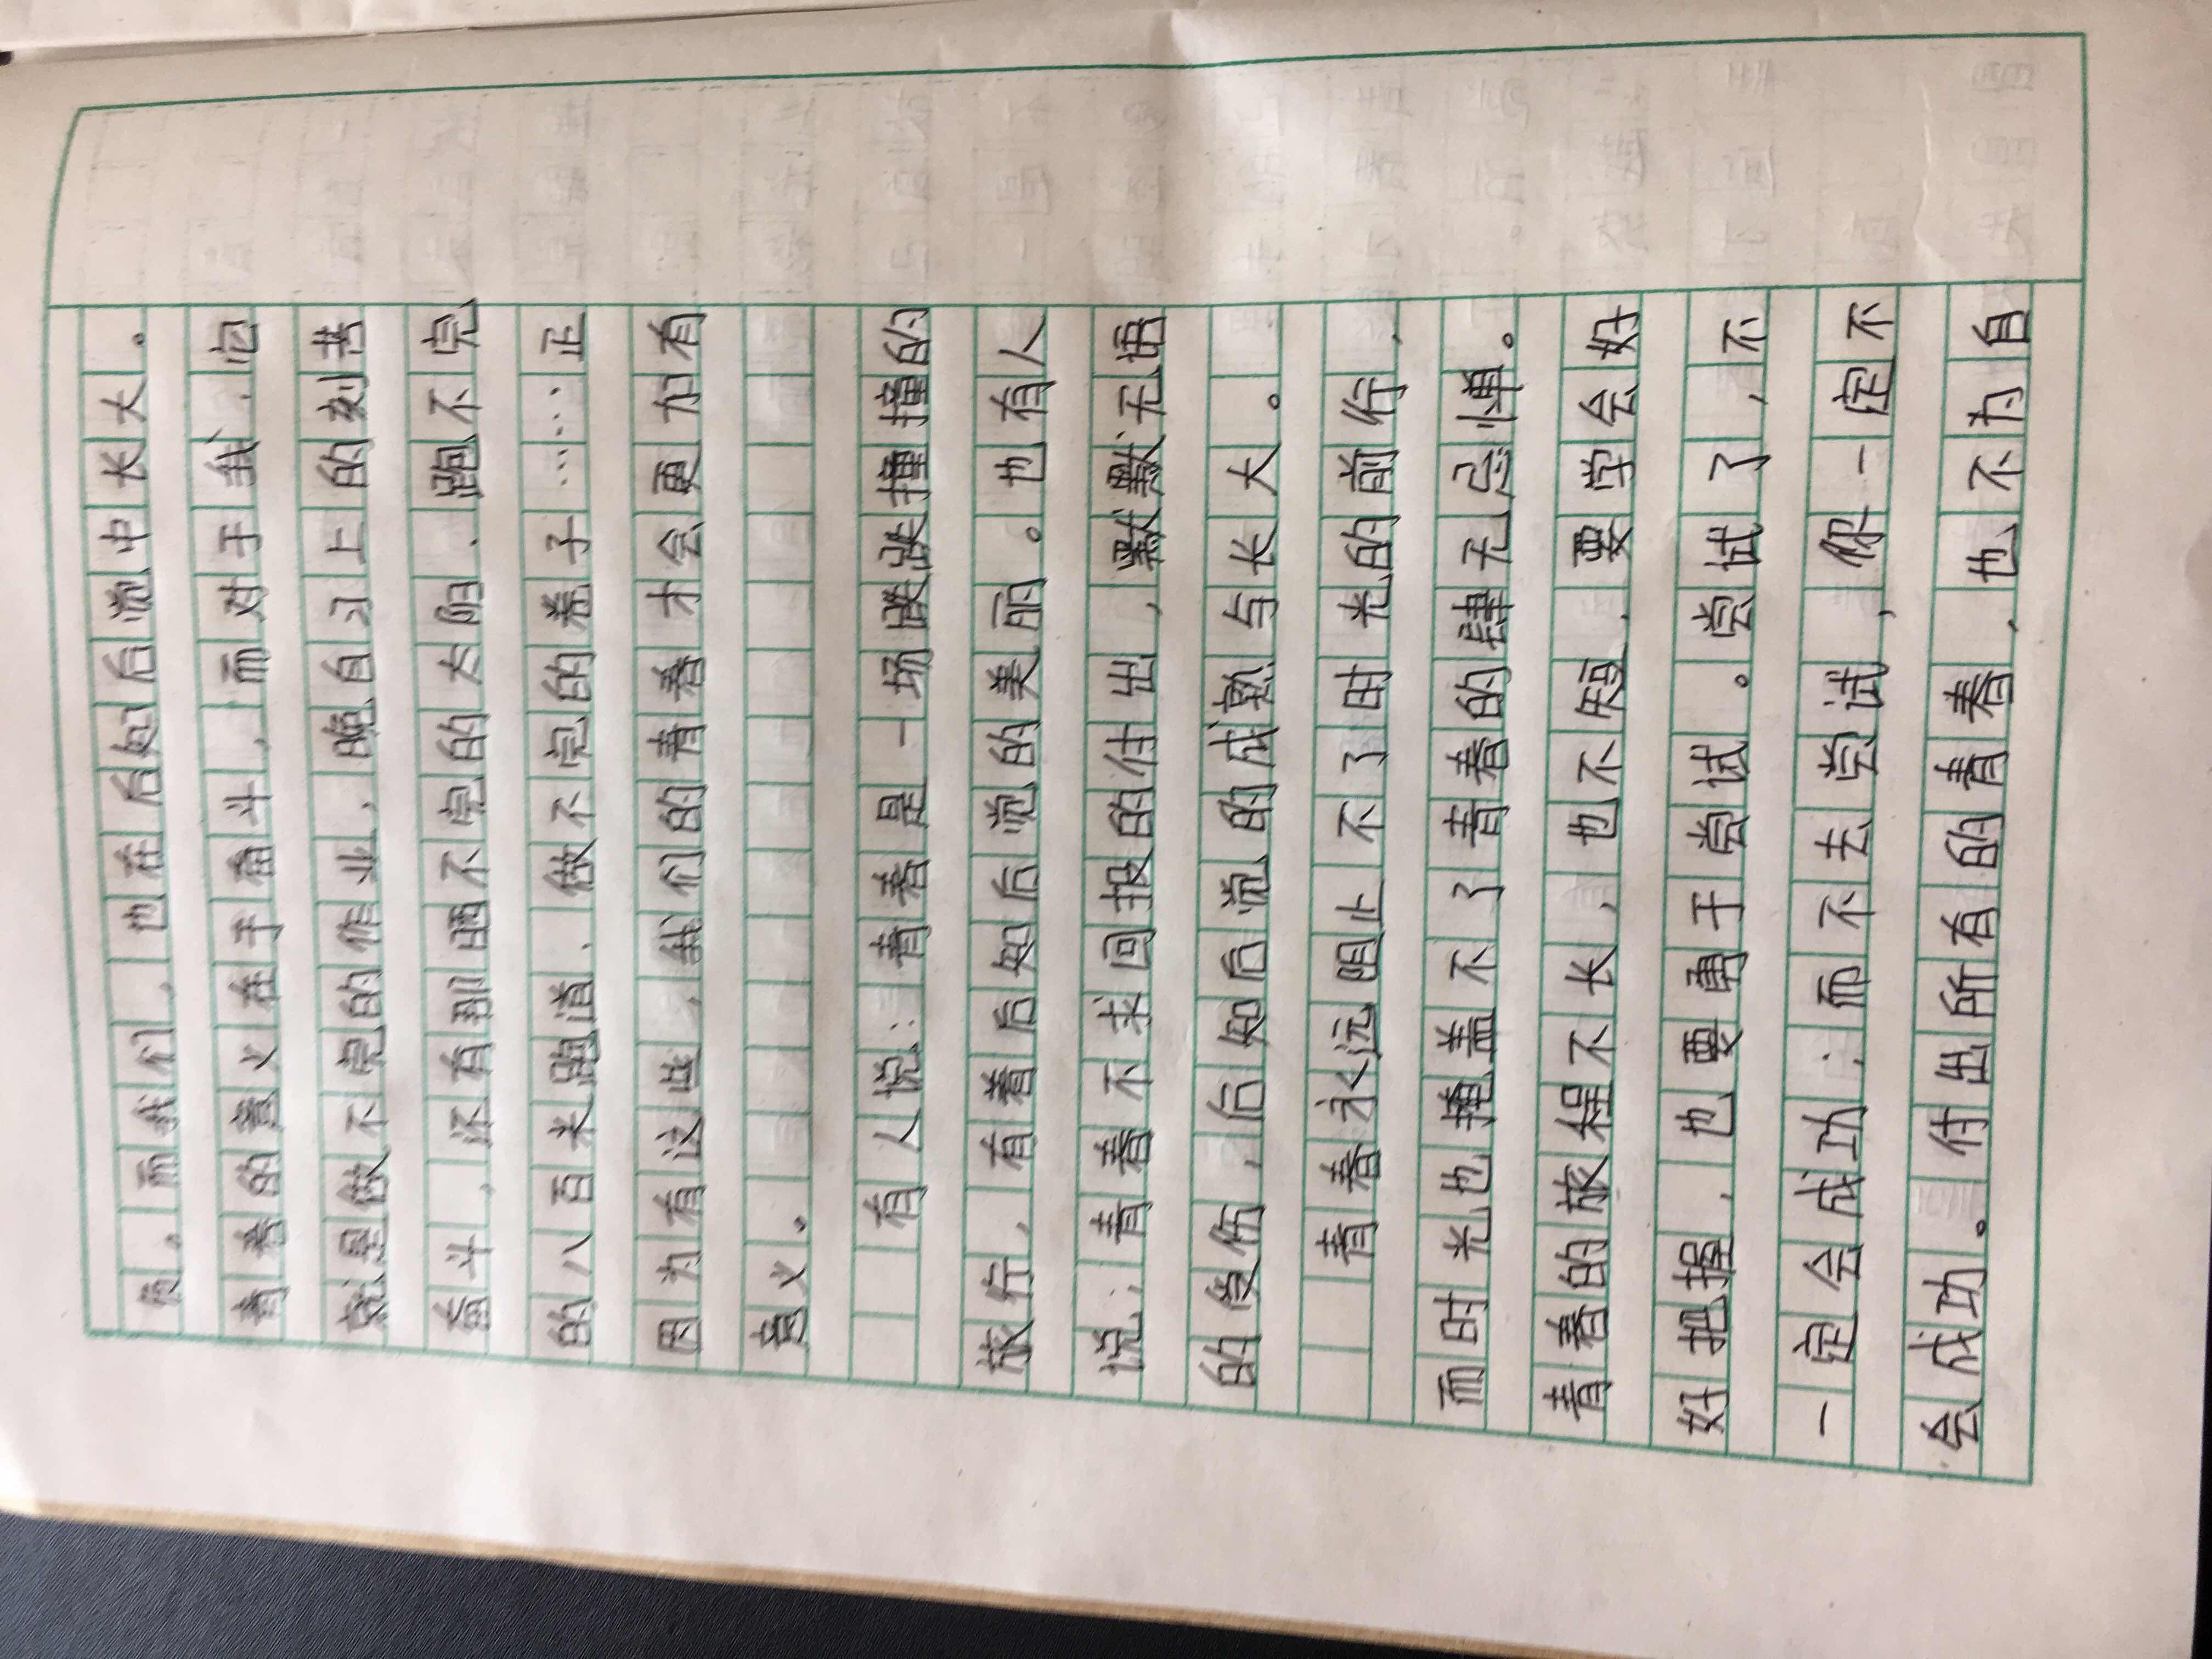 傻。而我们，也在后知后觉中长大。
青春的意义在于奋斗，而对于我，它
就是做不完的作业，晚自习上的刻苦
奋斗，还有那晒不完的太阳，跑不完
的八百米跑道，做不完的卷子……正
因为有这些，我们的青春才会更加有
意义。
有人说：青春是一场跌跌撞撞的
旅行，有着后知后觉的美丽。也有人
说：青春不求回报的付出，默默无语
的受伤，后知后觉的成熟与长大。
青春永远阻止不了时光的前行，
而时光也掩盖不了青春的肆无忌惮。
青春的旅程不长，也不短，要学会好
好把握，也要勇于尝试。尝试了，不
一定会成功；而不去尝试，你一定不
会成功。付出所有的青春，也不为自